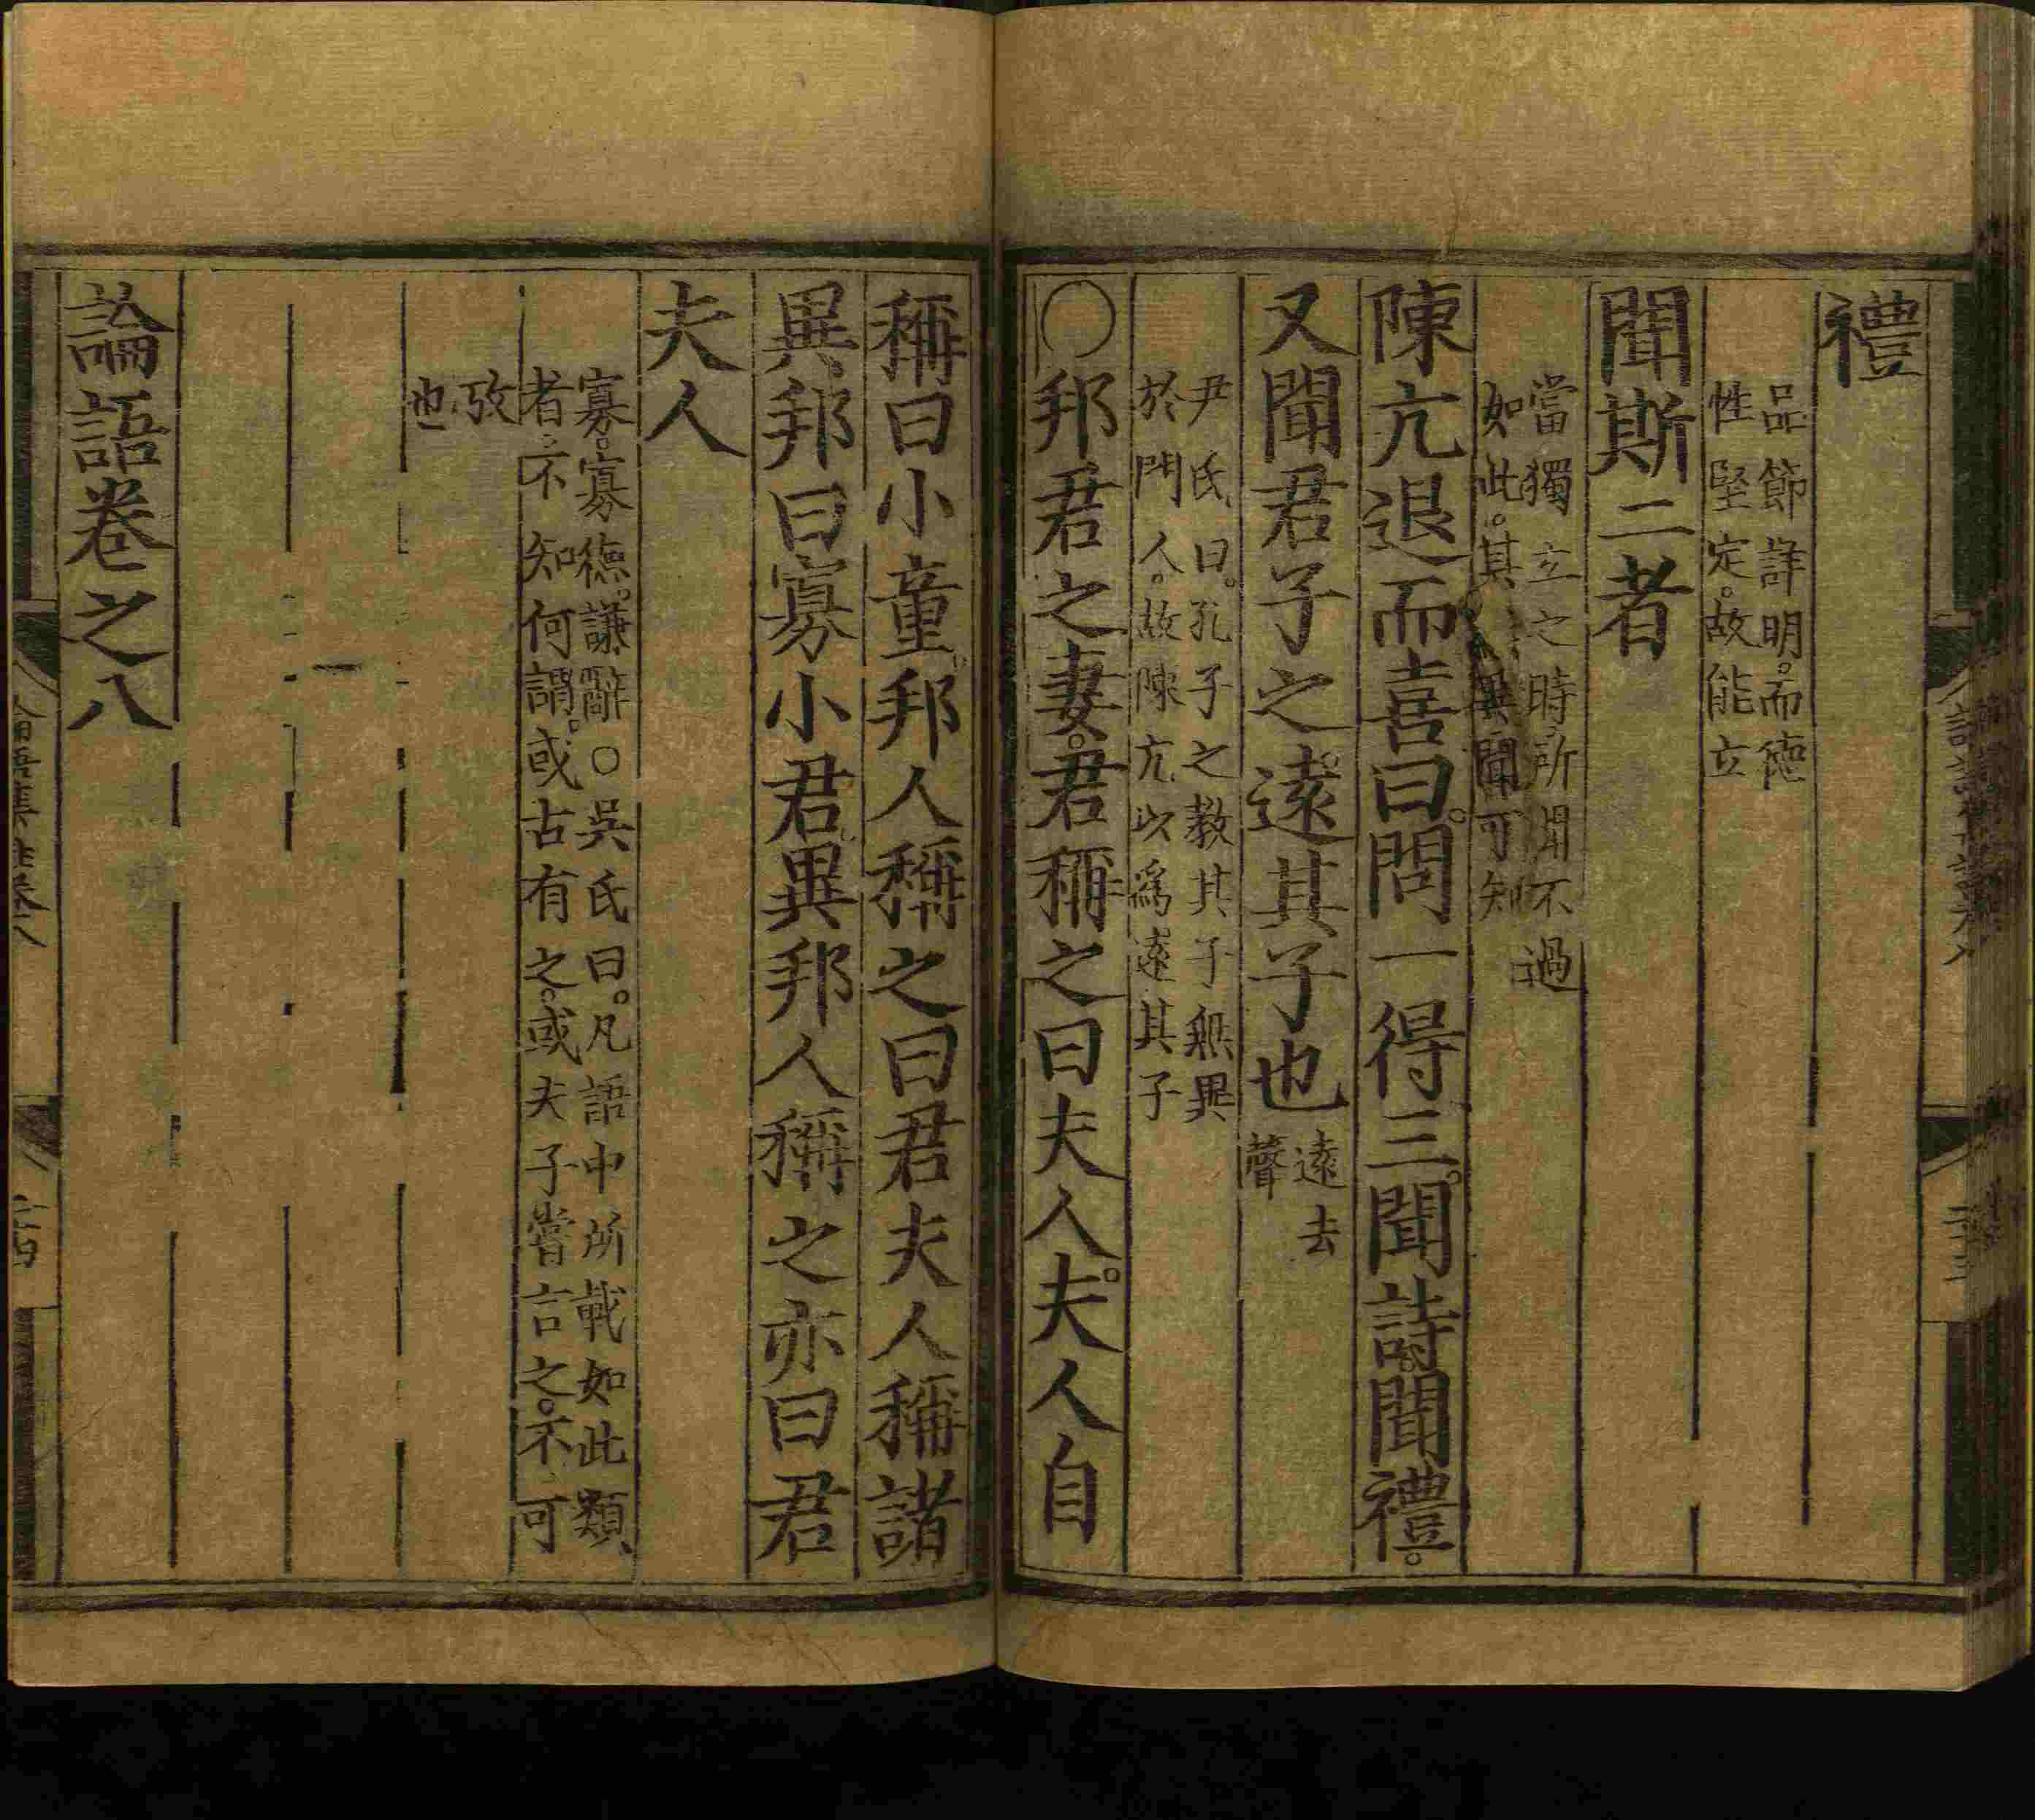 禮
品節詳明。而德
性堅定。故能立
聞斯二者
當獨立之時。所聞不過
如此。其無異聞可知
陳亢退而喜曰。問一得三。聞詩聞禮。
又聞君子之遠其子也
遠去
聲
尹氏曰。孔子之教其子無異
於門人。故陳亢以爲遠其子
○邦君之妻。君稱之曰夫人。夫人自
稱曰小童。邦人稱之曰君夫人稱諸
異邦曰寡小君。異邦人稱之亦曰君
夫人
寡。寡德。謙辭。○吳氏曰。凡語中所載如此類
者。不知何謂。或古有之。或夫子嘗言之。不可
攷
也
論語卷之八